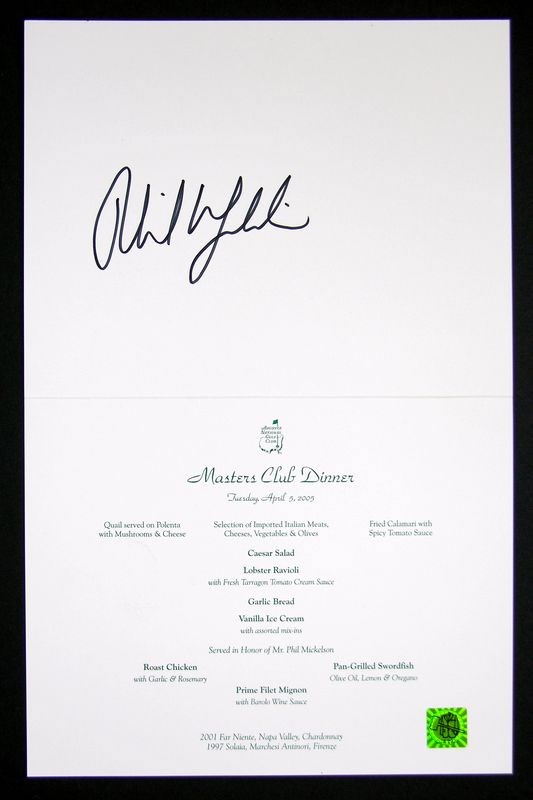 Phil Mickelson
AUGUSTA
NATIONAL
GOLF
CLUB
Masters Club Dinner
Tuesday, April 5, 2005
Quail served on Polenta
with Mushrooms & Cheese
Selection of Imported Italian Meats,
Cheeses, Vegetables & Olives
Fried Calamari with
Spicy Tomato Sauce
Caesar Salad
Lobster Ravioli
with Fresh Tarragon Tomato Cream Sauce
Garlic Bread
Vanilla Ice Cream
with assorted mix-ins
Served in Honor of Mr. Phil Mickelson
Roast Chicken
with Garlic & Rosemary
Pan-Grilled Swordfish
Olive Oil, Lemon & Oregano
Prime Filet Mignon
with Barolo Wine Sauce
2001 Far Niente, Napa Valley, Chardonnay
1997 Solaia, Marchesi Antinori, Firenze